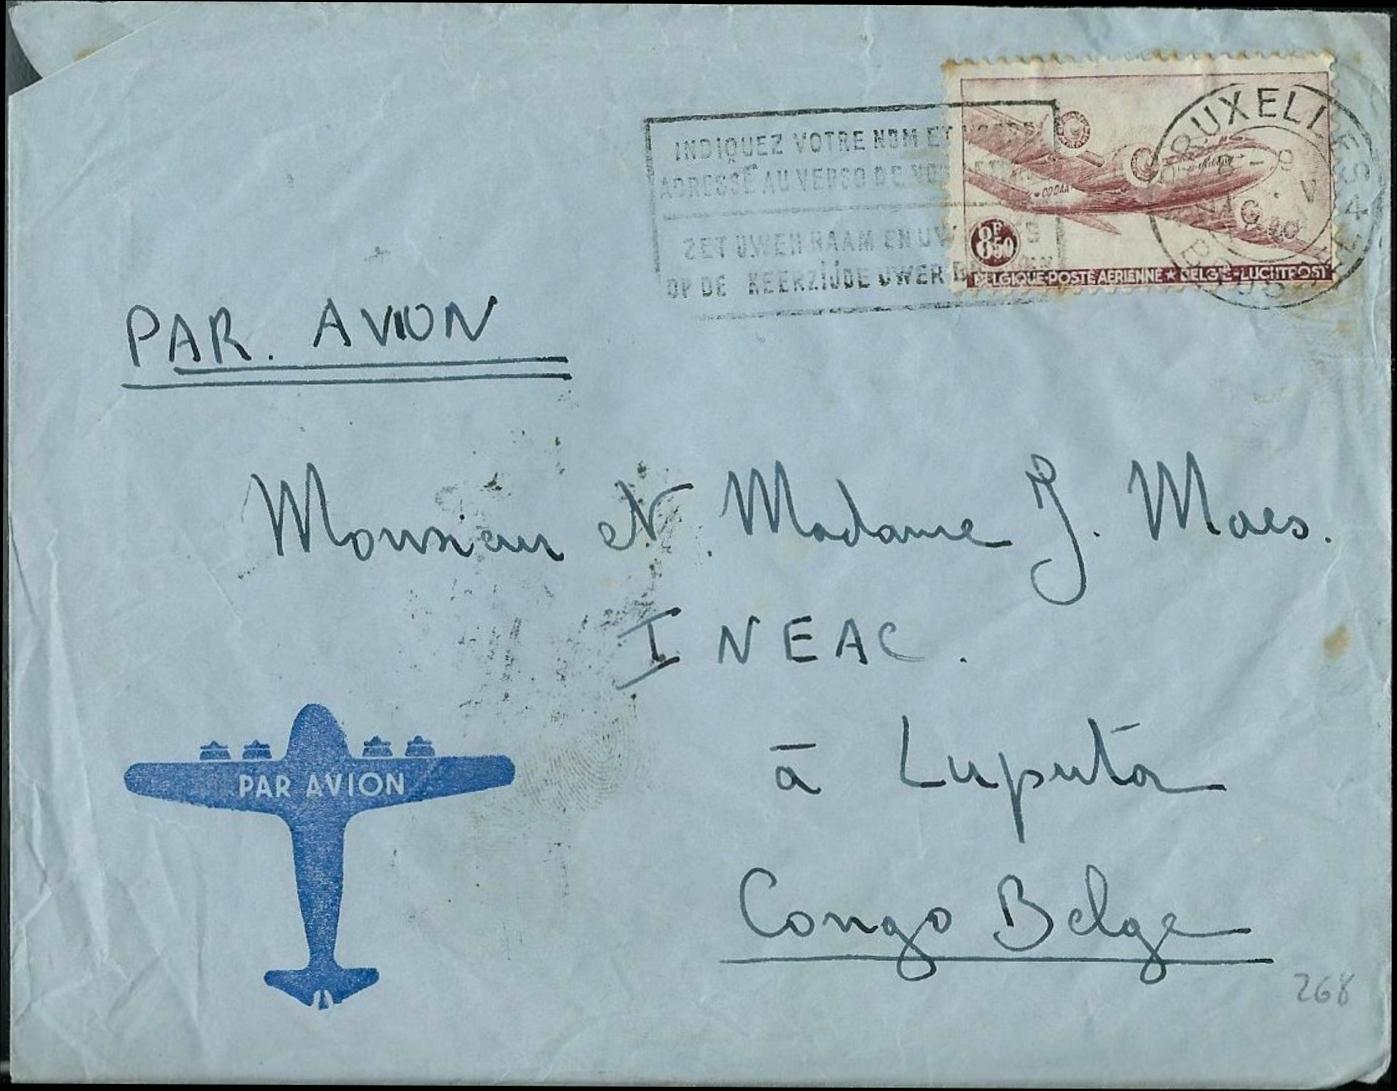 INDIQUEZ VOTRE NOM ET VOTRE
ADRESSE AU VERSO DE VOS LETTRES
ZET UWEN NAAM EN UW
OP DE KEERZIJDE UWER
BRUXELLES
BRUSSEL
OO-CDA
8F50
BELGIQUE-POSTE AERIENNE ★ BELGIË-LUCHTPOST
PAR. AVION
Monsieur et Madame J. Maes.
INEAC.
à Luputa
Congo Belge
PAR AVION
268